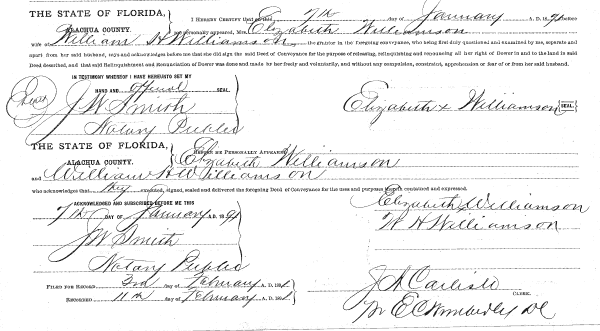 THE STATE OF FLORIDA,
ALACHUA COUNTY.
I HEREBY CERTIFY that on this 7th day of January A. D. 1891 before
me personally appeared, Mrs. Elizabeth Williamson
wife of William H Williamson the grantor in the foregoing conveyance, who being first duly questioned and examined by me, separate and
apart from her said husband, says and acknowledges before me that she did sign the said Deed of Conveyance for the purpose of releasing, relinquishing and renouncing all her right of Dower in and to the lands in said
Deed described, and that said Relinquishment and Renunciation of Dower was done and made by her freely and voluntarily, and without any compulsion, constraint, apprehension or fear of or from her said husband.
IN TESTIMONY WHEREOF I HAVE HEREUNTO SET MY
HAND AND official SEAL.
J W Smith
Notary Public
Elizabeth x Williamson SEAL
THE STATE OF FLORIDA,
ALACHUA COUNTY.
BEFORE ME PERSONALLY APPEARED Elizabeth Williamson
and William H Williamson
who acknowledges that they executed, signed, sealed and delivered the foregoing Deed of Conveyance for the uses and purposes therein contained and expressed.
ACKNOWLEDGED AND SUBSCRIBED BEFORE ME THIS
7th DAY OF January A. D. 1891
J W Smith
Notary Public
Elizabeth x Williamson
W H Williamson
FILED FOR RECORD 3rd day of February A. D. 1891
RECORDED 11th day of February A. D. 1891
J A Carlisle
CLERK.
E C Kimberly DC